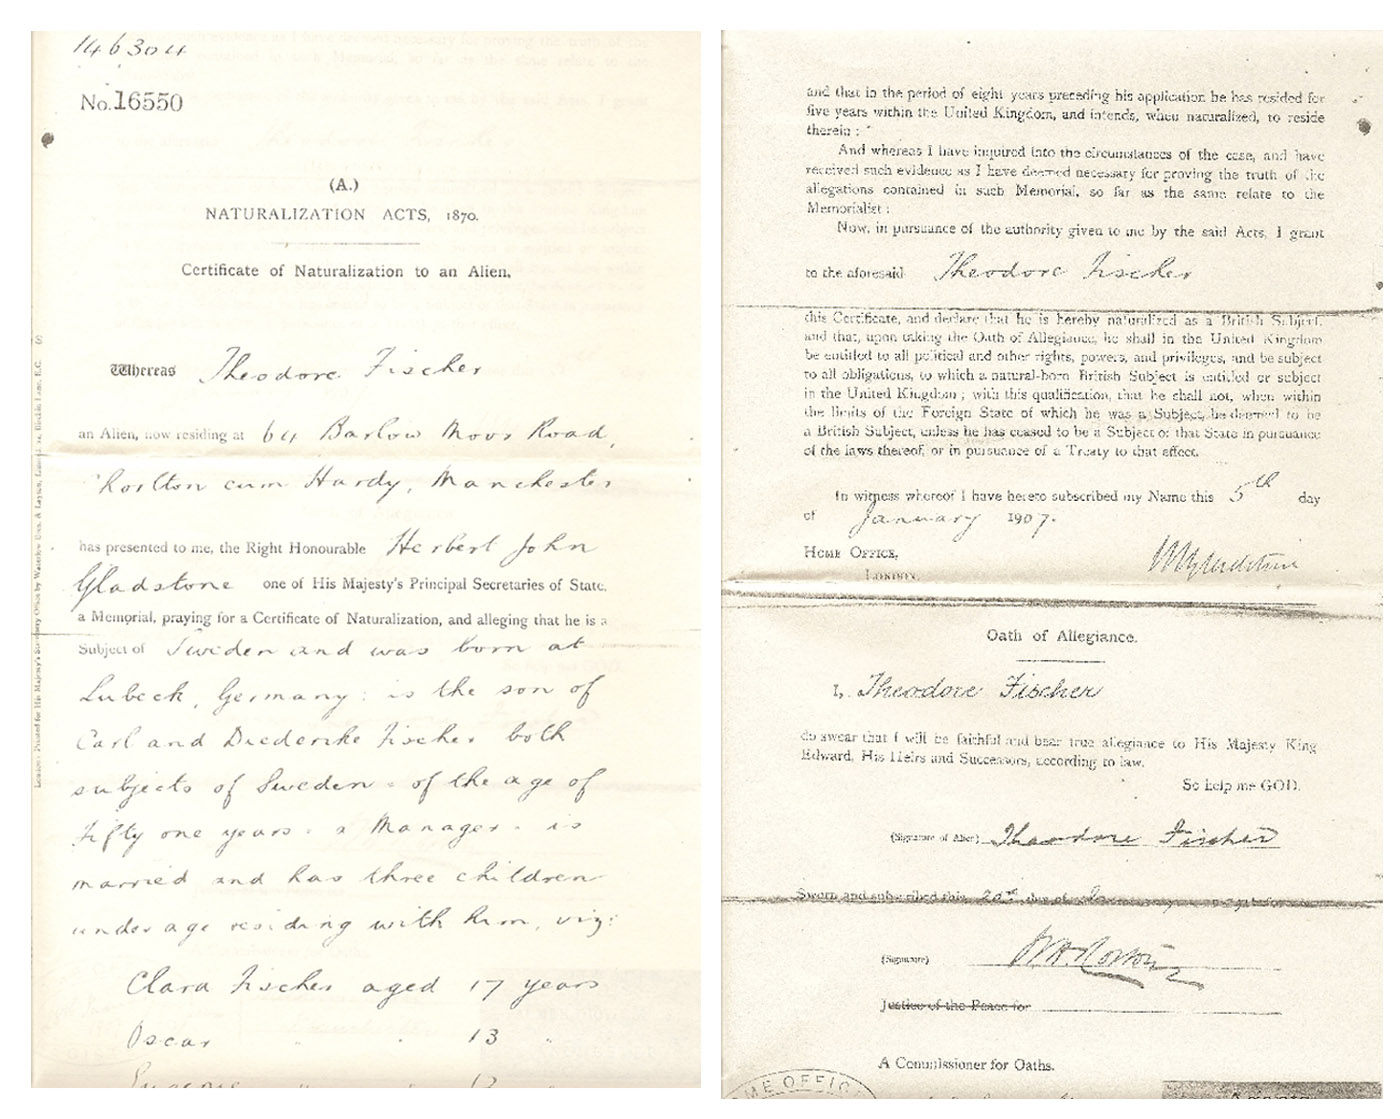 146304
No. 16550
(A.)
NATURALIZATION ACTS, 1870.
Certificate of Naturalization to an Alien.
Whereas Theodore Fischer
an Alien, now residing at 64 Barlow Moor Road,
Chorlton cum Hardy, Manchester
has presented to me, the Right Honourable Herbert John
Gladstone one of His Majesty's Principal Secretaries of State,
a Memorial, praying for a Certificate of Naturalization, and alleging that he is a
Subject of Sweden and was born at
Lubeck, Germany: is the son of
Carl and Fischer both
subjects of Sweden - of the age of
Fifty one years - a Manager - is
married and has three children
under age residing with him, viz:
Clara Fischer aged 17 years
Oscar " " 13 "
Eugene " " 12 "
London: Printed for His Majesty's Stationery Office by Waterlow Bros. & Layton, Limited, Birchin Lane, E.C.
and that in the period of eight years preceding his application he has resided for
five years within the United Kingdom, and intends, when naturalized, to reside
therein:
And whereas I have inquired into the circumstances of the case, and have
received such evidence as I have deemed necessary for proving the truth of the
allegations contained in such Memorial, so far as the same relate to the
Memorialist:
Now, in pursuance of the authority given to me by the said Acts, I grant
to the aforesaid Theodore Fischer
this Certificate, and declare that he is hereby naturalized as a British Subject,
and that, upon taking the Oath of Allegiance, he shall in the United Kingdom
be entitled to all political and other rights, powers, and privileges, and be subject
to all obligations, to which a natural-born British Subject is entitled or subject
in the United Kingdom; with this qualification, that he shall not, when within
the limits of the Foreign State of which he was a Subject, be deemed to be
a British Subject, unless he has ceased to be a Subject of that State in pursuance
of the laws thereof, or in pursuance of a Treaty to that effect.
In witness whereof I have hereto subscribed my Name this 5th day
of January 1907.
HOME OFFICE,
LONDON.
Oath of Allegiance.
I, Theodore Fischer
do swear that I will be faithful and bear true allegiance to His Majesty King
Edward, His Heirs and Successors, according to law.
So help me GOD.
(Signature of Alien) Theodore Fischer
Sworn and subscribed this day of
(Signature)
Justice of the Peace for
A Commissioner for Oaths.
HOME OFFICE